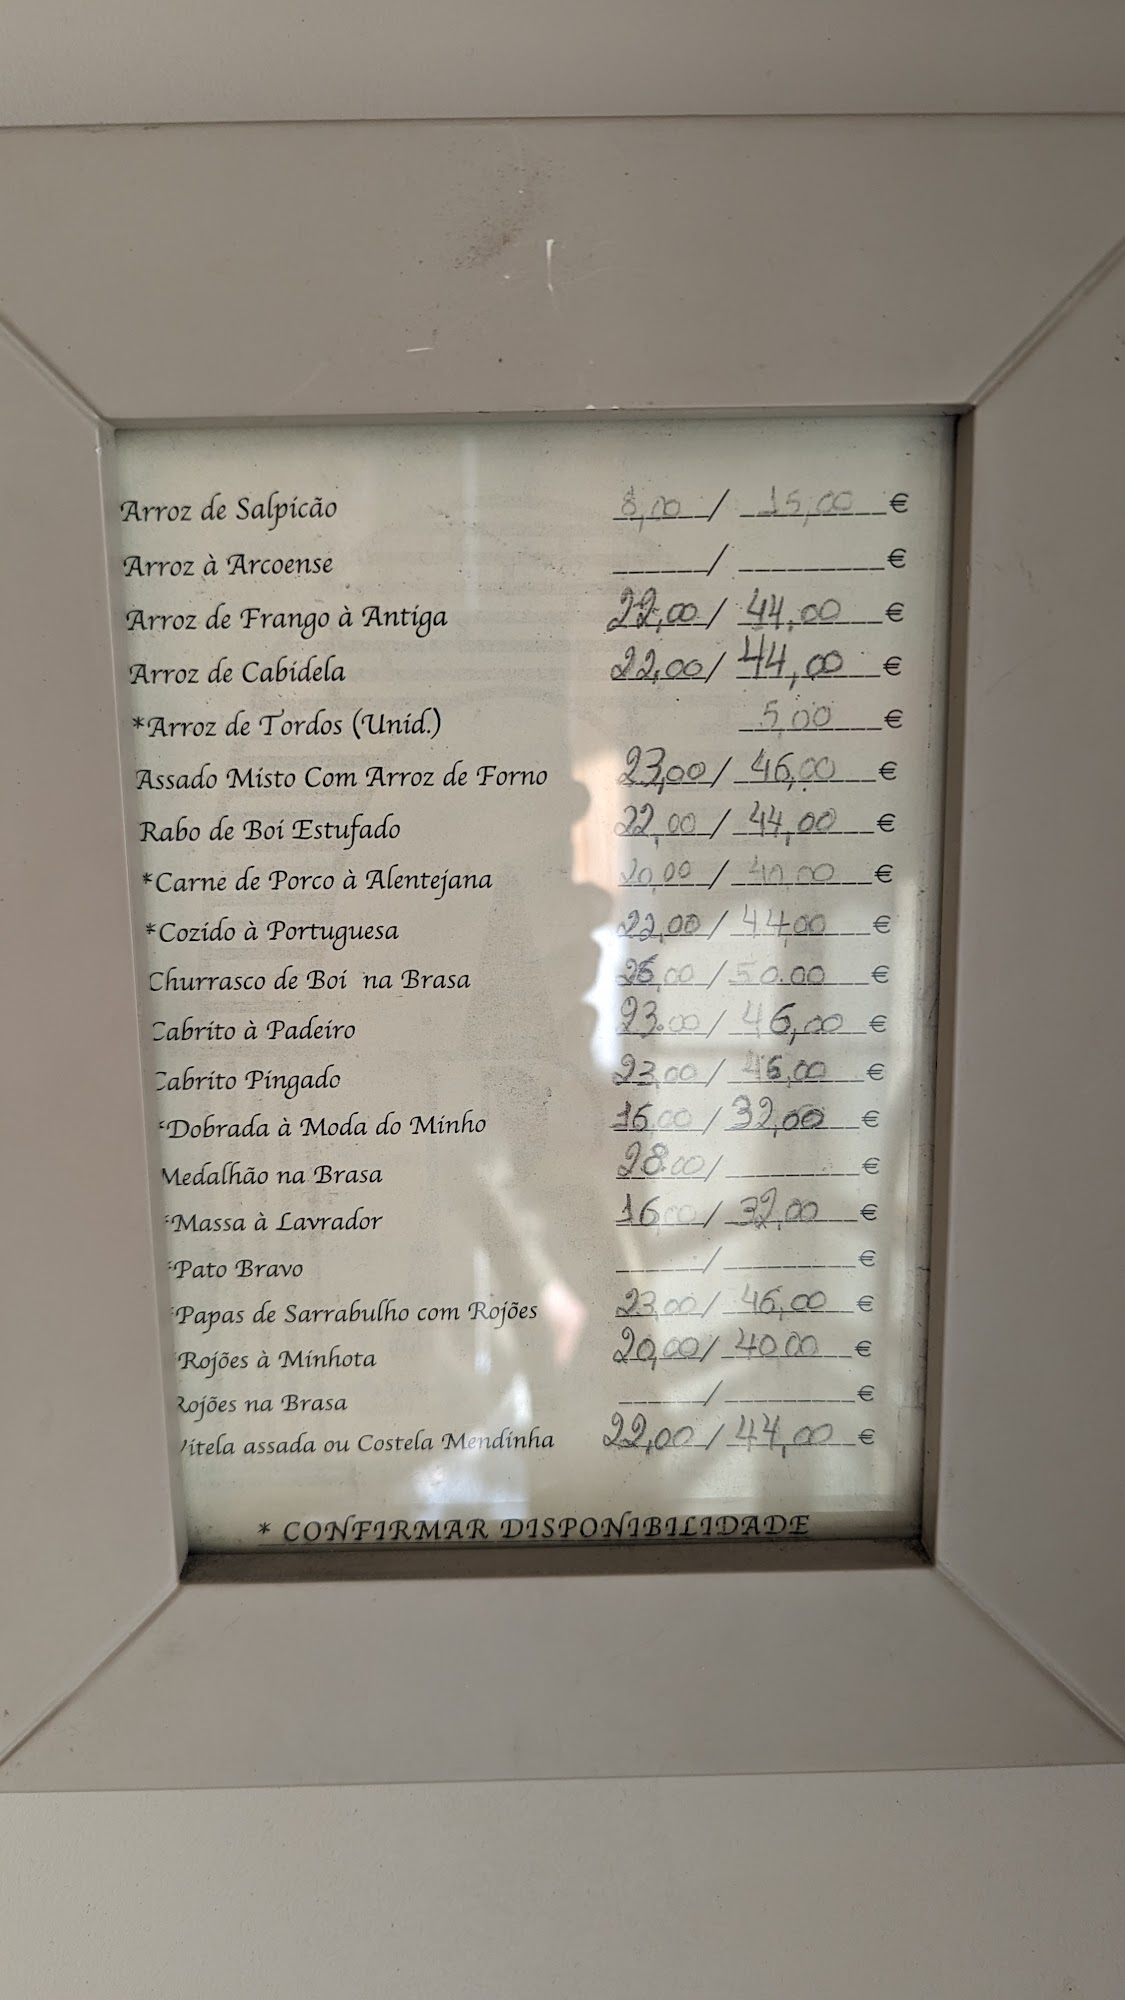 Arroz de Salpicão 8,00 / 15,00 €
Arroz à Arcoense ______/ _________€
Arroz de Frango à Antiga 22,00 / 44,00 €
Arroz de Cabidela 22,00 / 44,00 €
*Arroz de Tordos (Unid.) 5,00 €
Assado Misto Com Arroz de Forno 23,00 / 46,00 €
Rabo de Boi Estufado 22,00 / 44,00 €
*Carne de Porco à Alentejana 20,00 / 40,00 €
*Cozido à Portuguesa 22,00 / 44,00 €
Churrasco de Boi na Brasa / 50.00 €
Cabrito à Padeiro 23.00 / 46,00 €
Cabrito Pingado 23,00 / 46,00 €
*Dobrada à Moda do Minho 16,00 / 32,00 €
Medalhão na Brasa 28.00 / _________€
*Massa à Lavrador 16,00 / 32,00 €
*Pato Bravo ______/ _________€
*Papas de Sarrabulho com Rojões 23,00 / 46,00 €
*Rojões à Minhota 20,00 / 40,00 €
Rojões na Brasa ______/ _________€
Vitela assada ou Costela Mendinha 22,00 / 44,00 €
* CONFIRMAR DISPONIBILIDADE